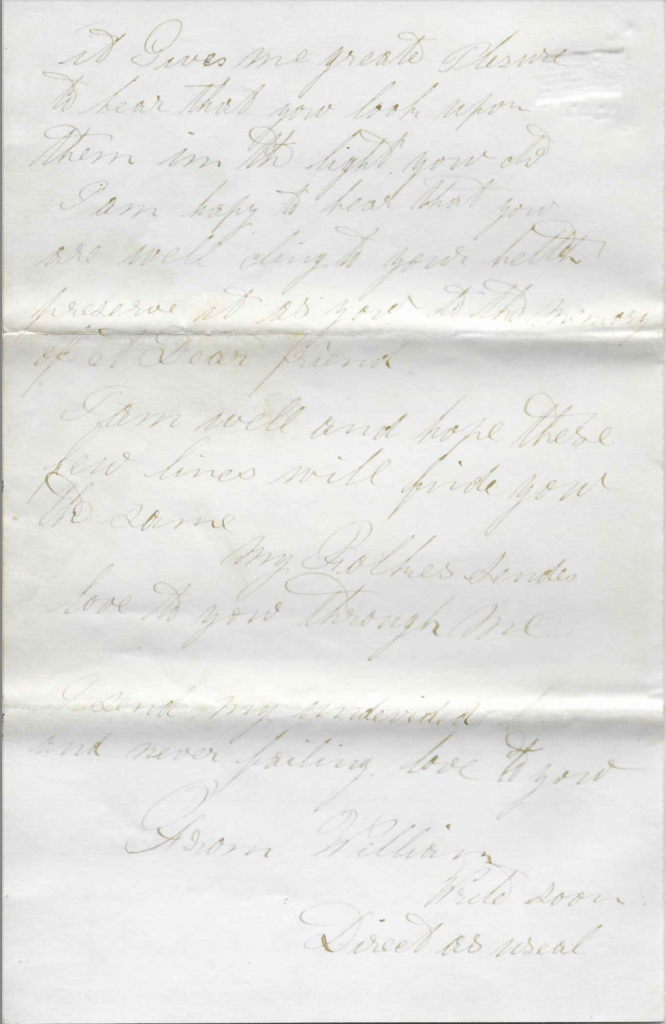 it Gives me greate Plesure
to hear that yow look upon
them in the light yow do
I am hapy to hear that yow
are well cling to your helth
preserve it as yow do the memory
of a Dear friend
I am well and hope these
few lines will finde yow
the same
My Folkes sendes
love to yow through me
I send my undevided
and never failing love to yow
From William
Write soon
Direct as useal